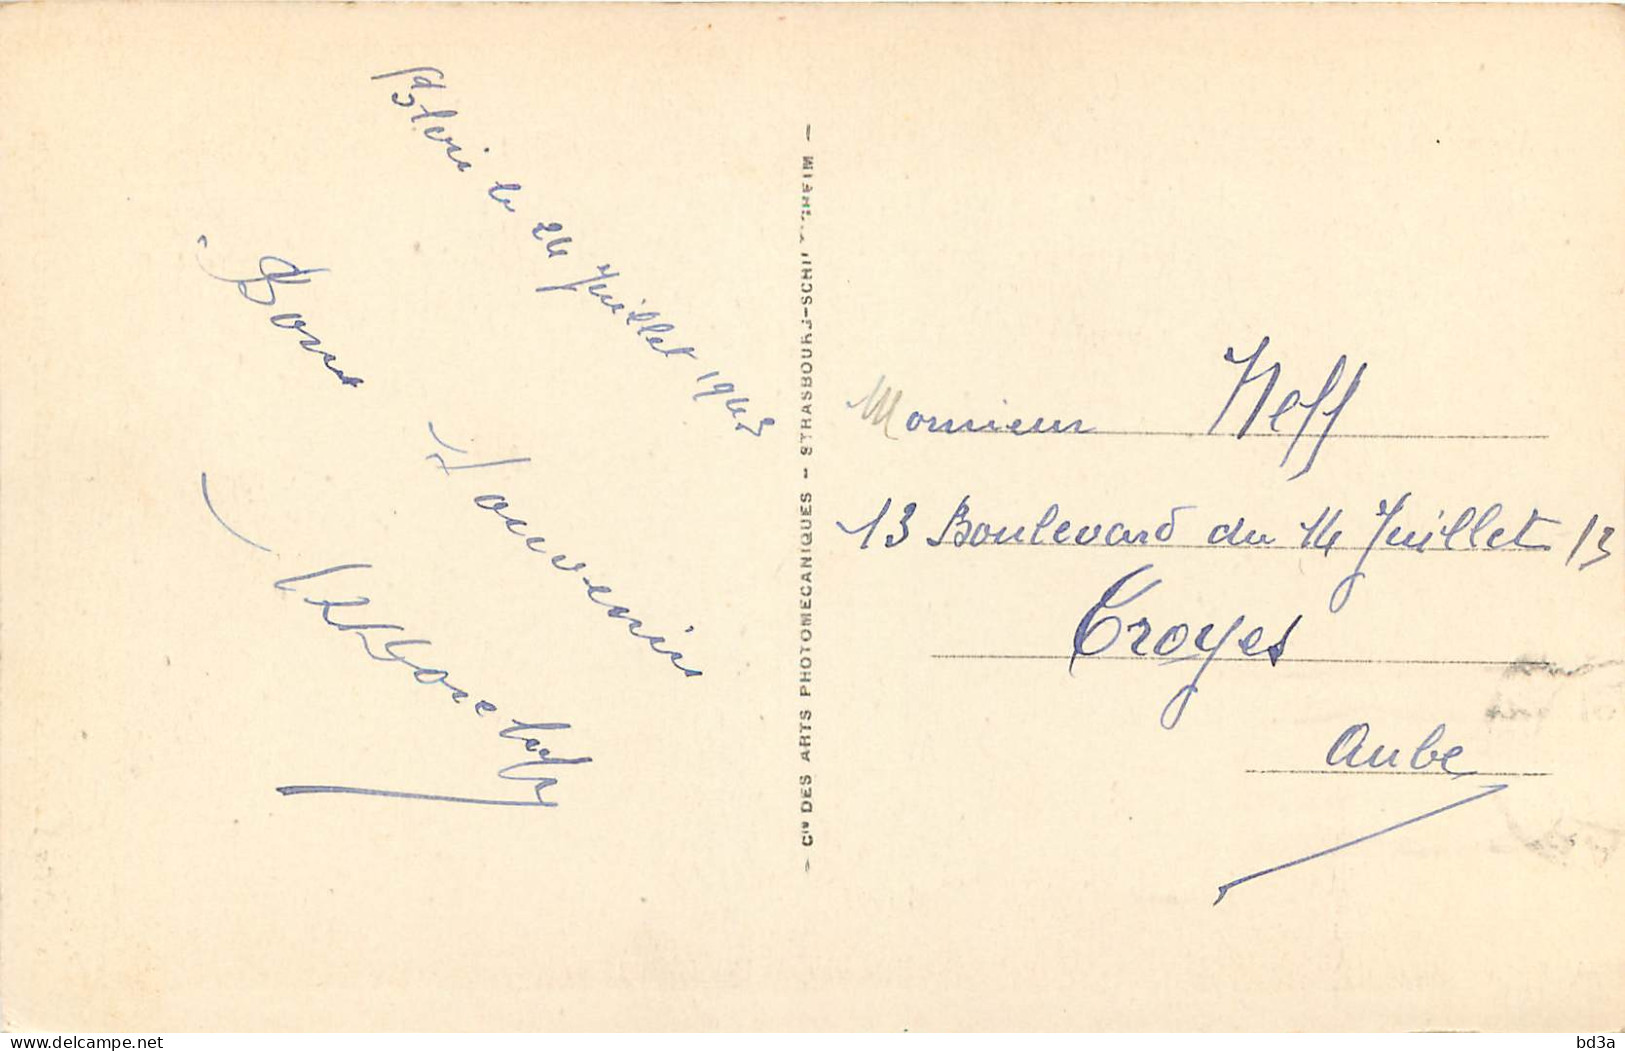 le 24 Juillet 1943
Bons
Souvenirs
- Cie DES ARTS PHOTOMECANIQUES - STRASBOURG-SCHILTIGHEIM -
Monsieur Neff
13 Boulevard du 14 Juillet 13
Troyes
Aube
delcampe.net
bd3a